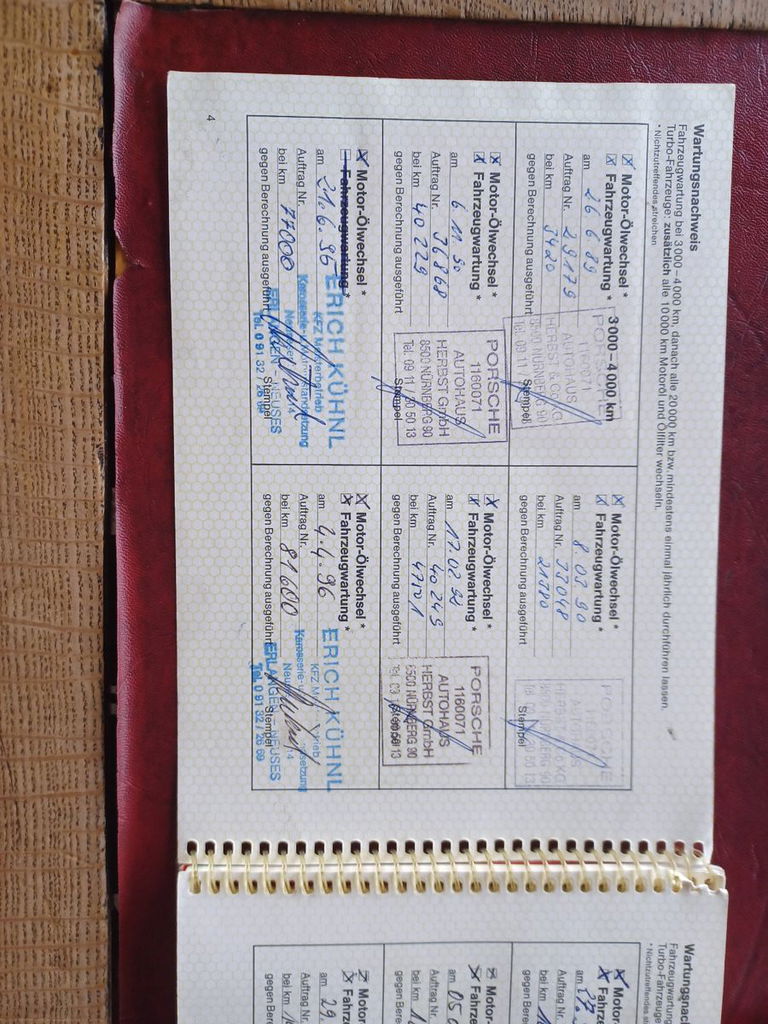 Wartungsnachweis
Fahrzeugwartung bei 3 000 – 4 000 km, danach alle 20 000 km bzw. mindestens einmal jährlich durchführen lassen.
Turbo-Fahrzeuge: zusätzlich alle 10 000 km Motoröl und Ölfilter wechseln.
* Nichtzutreffendes streichen
X Motor-Ölwechsel *
X Fahrzeugwartung * 3 000 – 4 000 km
am 26 6 89
Auftrag Nr. 29179
bei km 3420
gegen Berechnung ausgeführt
PORSCHE
1160071
AUTOHAUS
HERBST & Co KG
8500 NÜRNBERG 90
Tel. 09 11
Stempel
X Motor-Ölwechsel *
X Fahrzeugwartung *
am 8 03 90
Auftrag Nr. 33048
bei km 21380
gegen Berechnung ausgeführt
PORSCHE
AUTOHAUS
NÜRNBERG 90
50 13
Stempel
X Motor-Ölwechsel *
X Fahrzeugwartung *
am 6 11 90
Auftrag Nr. 36868
bei km 40 229
gegen Berechnung ausgeführt
PORSCHE
1160071
AUTOHAUS
HERBST GmbH
8500 NÜRNBERG 90
Tel. 09 11 30 50 13
Stempel
X Motor-Ölwechsel *
X Fahrzeugwartung *
am 17.02 92
Auftrag Nr. 40249
bei km 47101
gegen Berechnung ausgeführt
PORSCHE
1160071
AUTOHAUS
HERBST GmbH
8500 NÜRNBERG 90
50 13
Stempel
X Motor-Ölwechsel *
Fahrzeugwartung *
am 21.6.95
Auftrag Nr.
bei km 77000
gegen Berechnung ausgeführt
ERICH KÜHNL
KFZ Meisterbetrieb
Karosserie- Instandsetzung
ERLANGEN - NEUSES
Tel. 0 91 32 / 26 69
Stempel
X Motor-Ölwechsel *
X Fahrzeugwartung *
am 4.4.96
Auftrag Nr.
bei km 81600
gegen Berechnung ausgeführt
ERICH KÜHNL
KFZ
Karosserie-
ERLANGEN - NEUSES
Tel. 0 91 32 / 26 69
Stempel
4
Wartungsnac
Fahrzeugwartung
Turbo-Fahrzeuge
* Nichtzutreffendes
X Motor-
X Fahrz
am
Auftrag
bei km
gegen Ber
X Motor-
X Fahrz
am 05
Auftrag Nr.
bei km
gegen Bere
X Motor-
X Fahrze
am 29.
Auftrag Nr.
bei km
gegen Bere